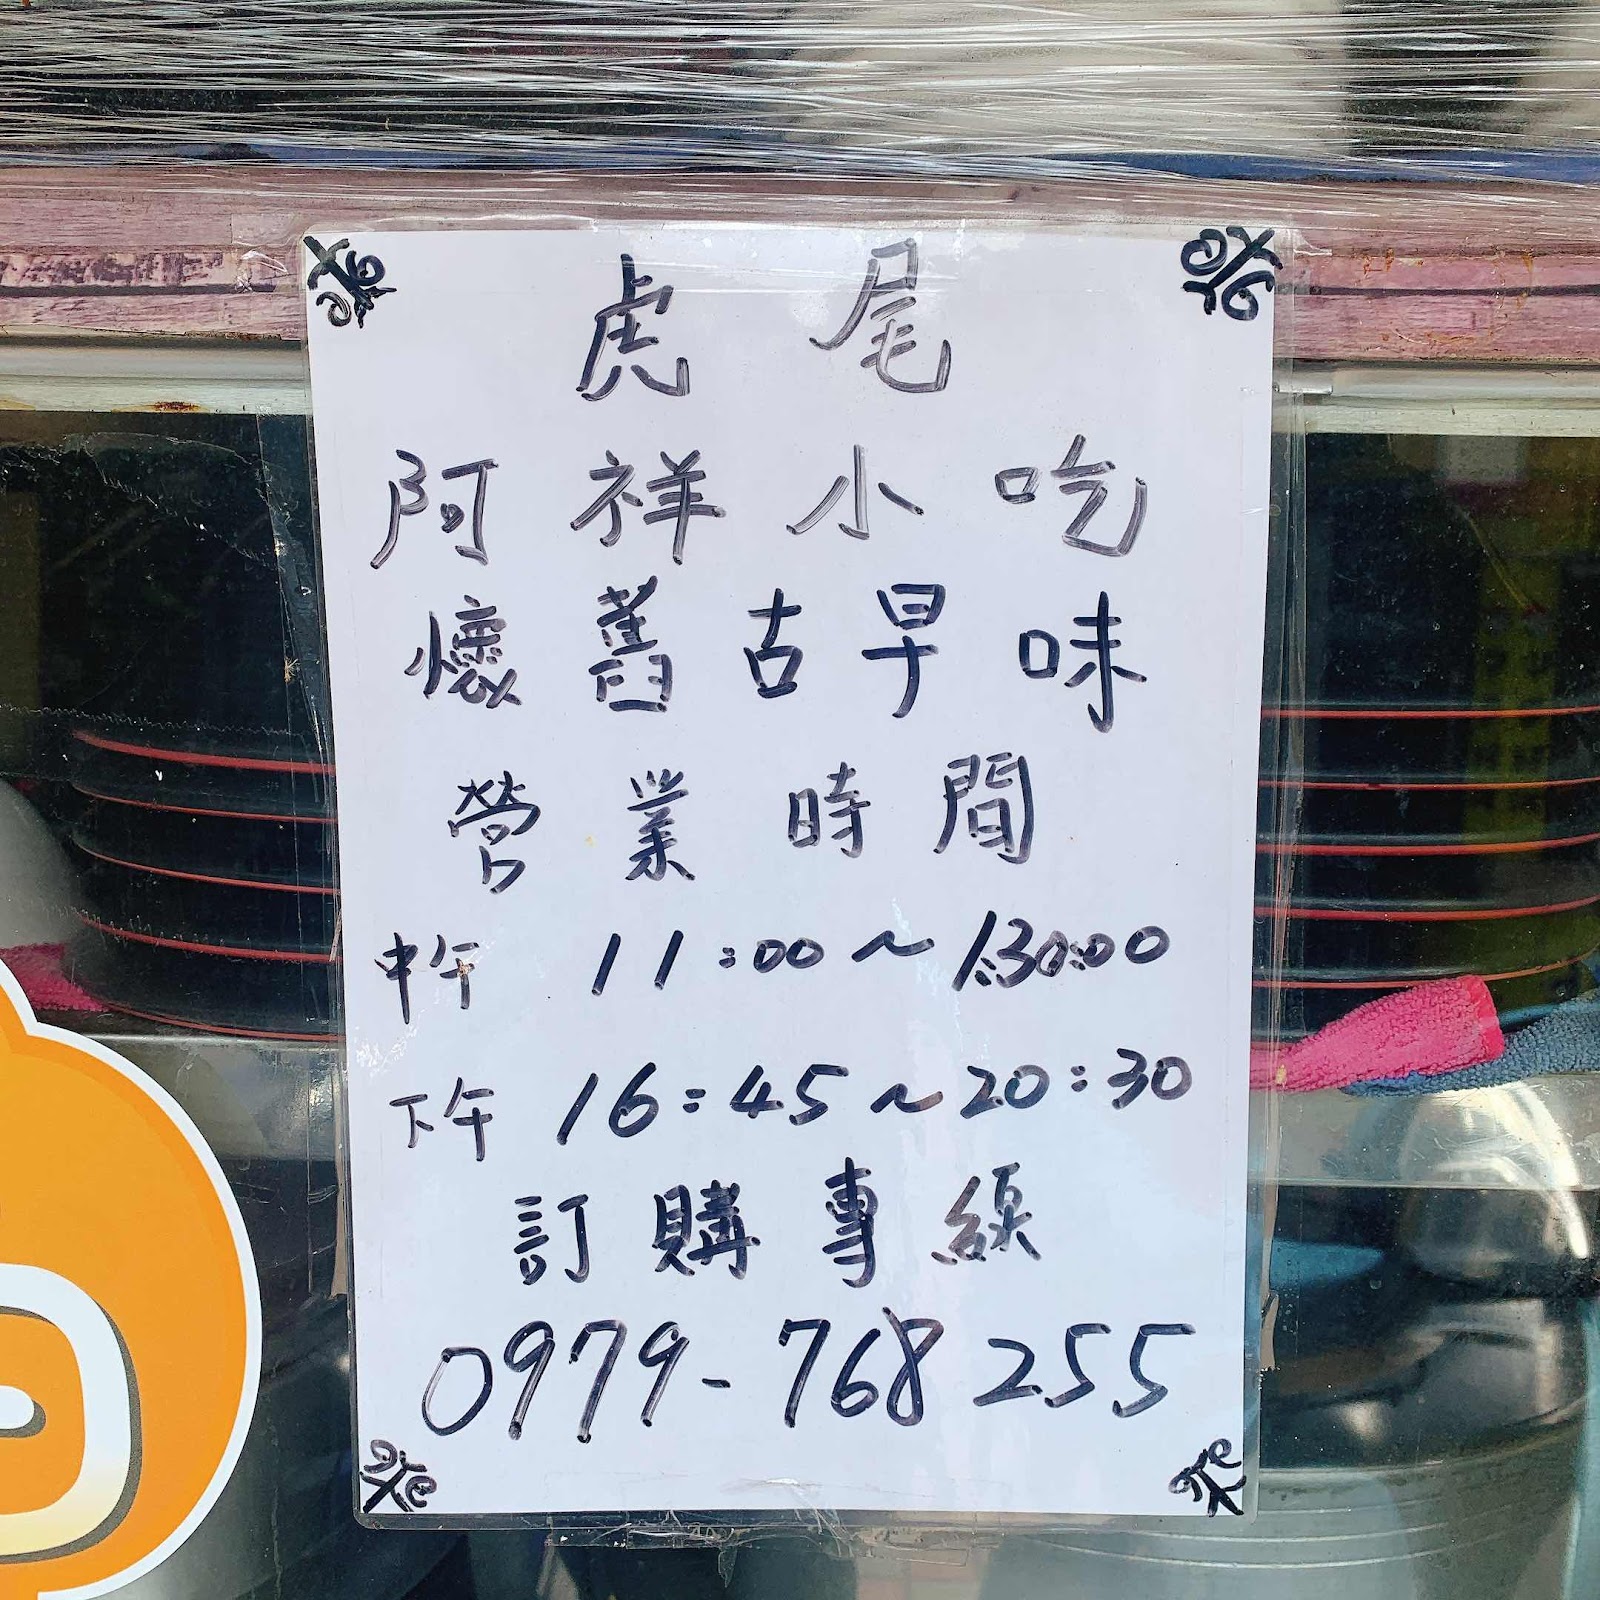 虎尾
阿祥小吃
懷舊古早味
營業時間
中午 11:00~13:00
下午 16:45~20:30
訂購專線
0979-768255